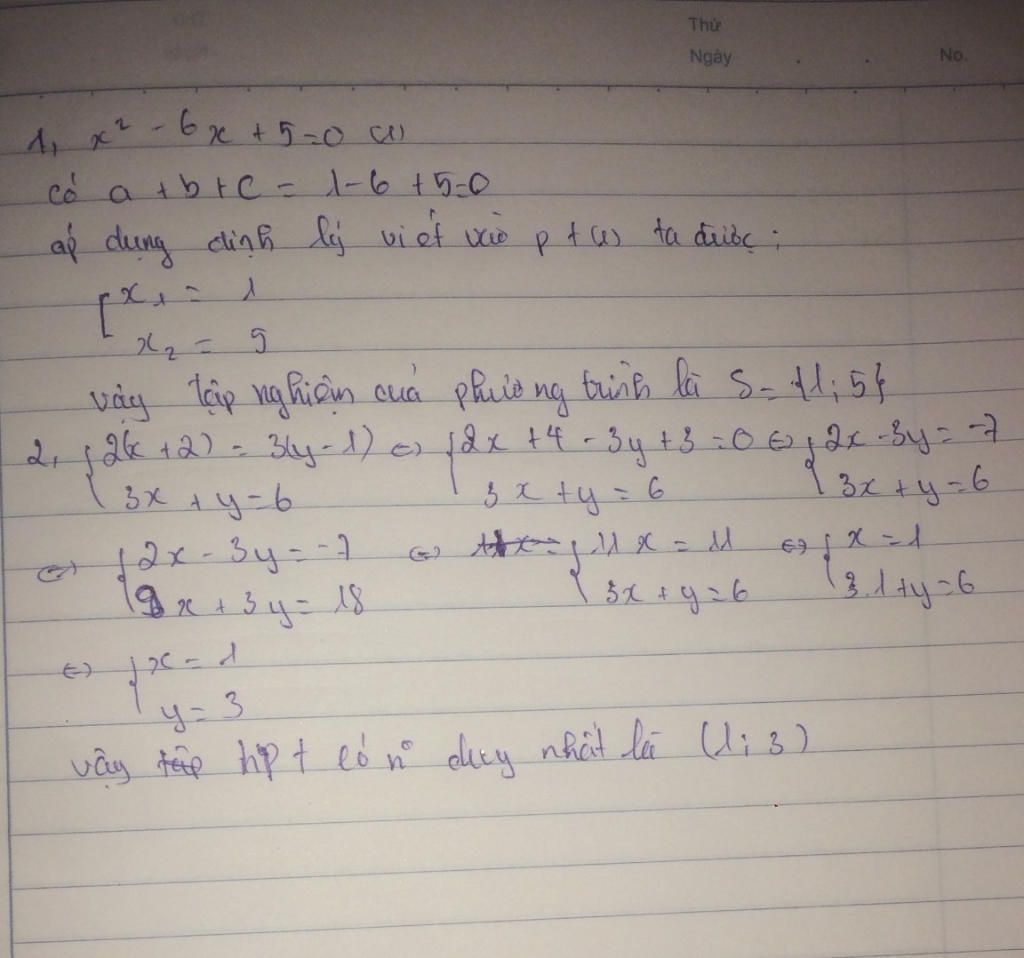 Thứ
Ngày . . No.
1, x² - 6x + 5 = 0 (1)
có a + b + c = 1 - 6 + 5 = 0
áp dụng định lý viét vào pt (1) ta được :
[ x₁ = 1
x₂ = 5
vậy tập nghiệm của phương trình là S = {1; 5}
2, { 2(x + 2) = 3(y - 1) <=> { 2x + 4 - 3y + 3 = 0 <=> { 2x - 3y = -7
3x + y = 6 3x + y = 6 3x + y = 6
<=> { 2x - 3y = -7 <=> { 11x = 11 <=> { x = 1
9x + 3y = 18 3x + y = 6 3.1 + y = 6
<=> { x = 1
y = 3
vậy hpt có n° duy nhất là (1; 3)